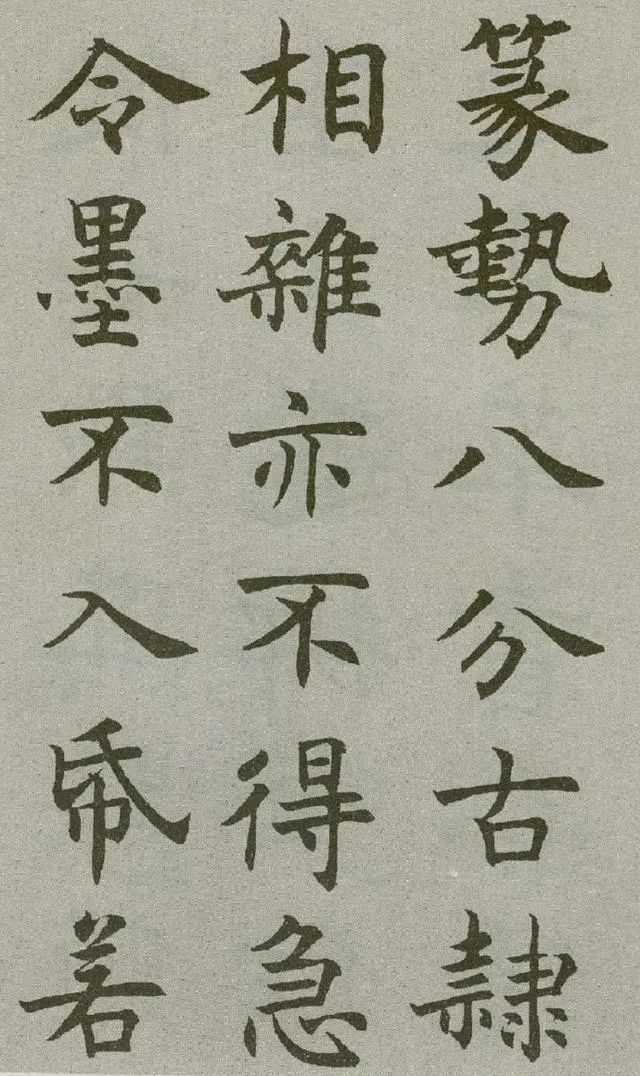 篆勢八分古隸
相雜亦不得急
令墨不入帋若